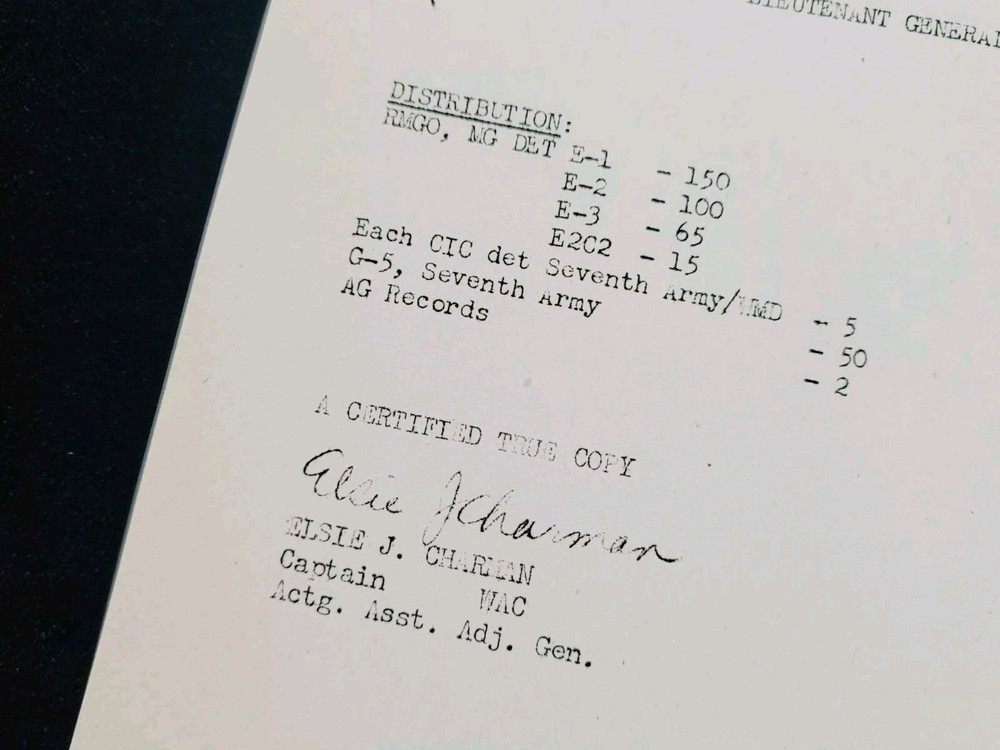 LIEUTENANT GENERAL
DISTRIBUTION:
RMGO, MG DET E-1 - 150
E-2 - 100
E-3 - 65
E2C2 - 15
Each CIC det Seventh Army/WMD - 5
G-5, Seventh Army - 50
AG Records - 2
A CERTIFIED TRUE COPY
Elsie J Charman
ELSIE J. CHARMAN
Captain WAC
Actg. Asst. Adj. Gen.